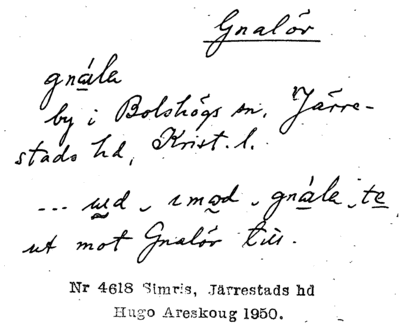 Gnalöv
gnála
by i Bolshögs sn, Järre-
stads hd, Krist. l.
... ud, imod, gnála, te
ut mot Gnalöv till.
Nr 4618 Simris, Järrestads hd
Hugo Areskoug 1950.